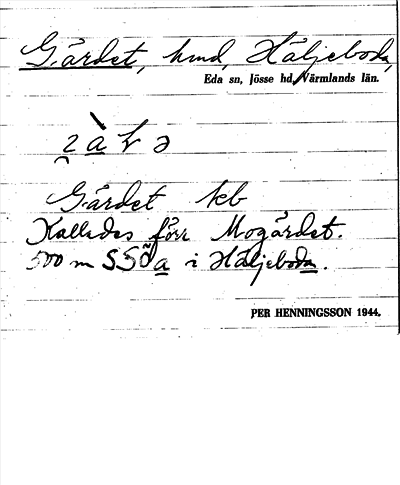 Gärdet, hmd, Häljeboda,
Eda sn, Jösse hd, Värmlands län.
Gärdet kb
Kallades förr Mogärdet.
500 m SSÖ a i Häljeboda.
PER HENNINGSSON 1944.